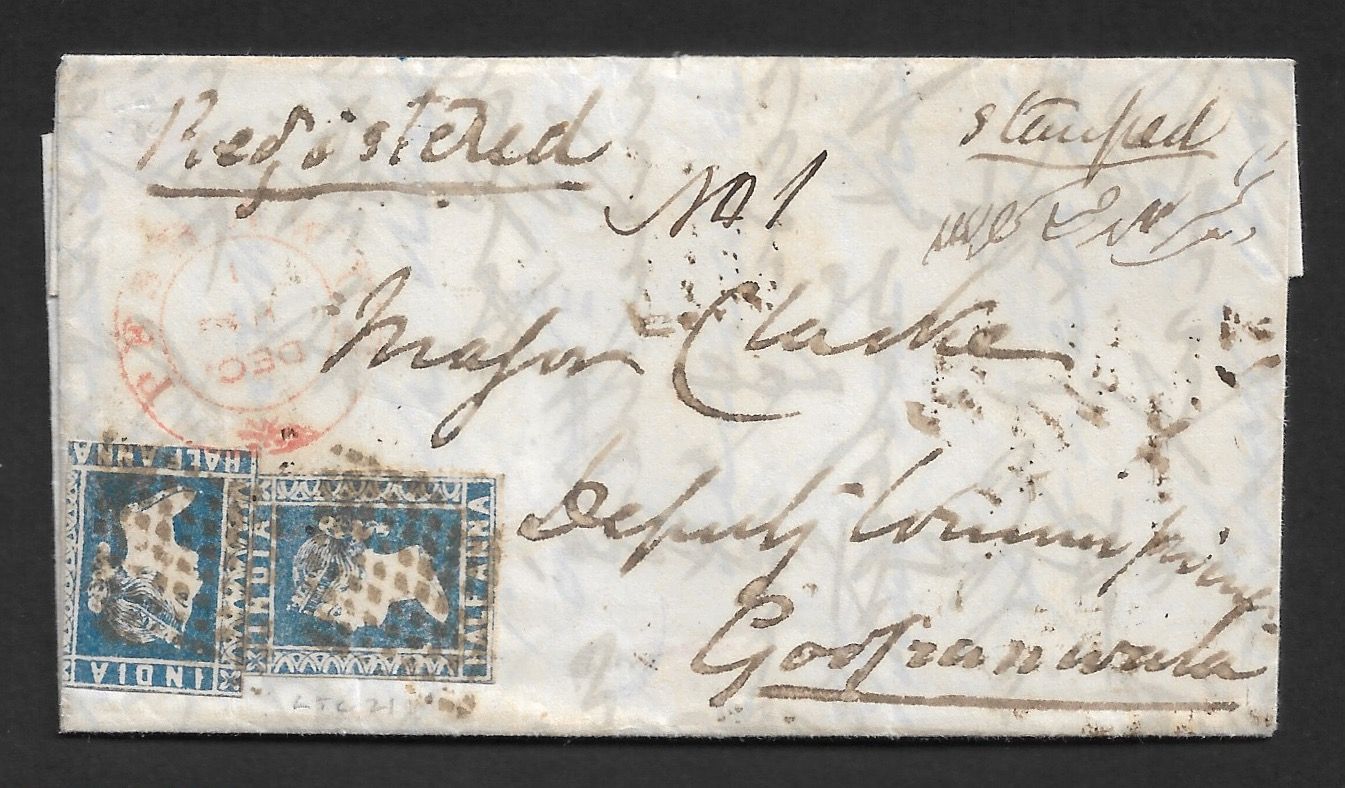 Registered
stamped
No 1
Major Clarke
Deputy Commissioner
Goojranwala
DEC
HALF ANNA
INDIA
INDIA
HALF ANNA